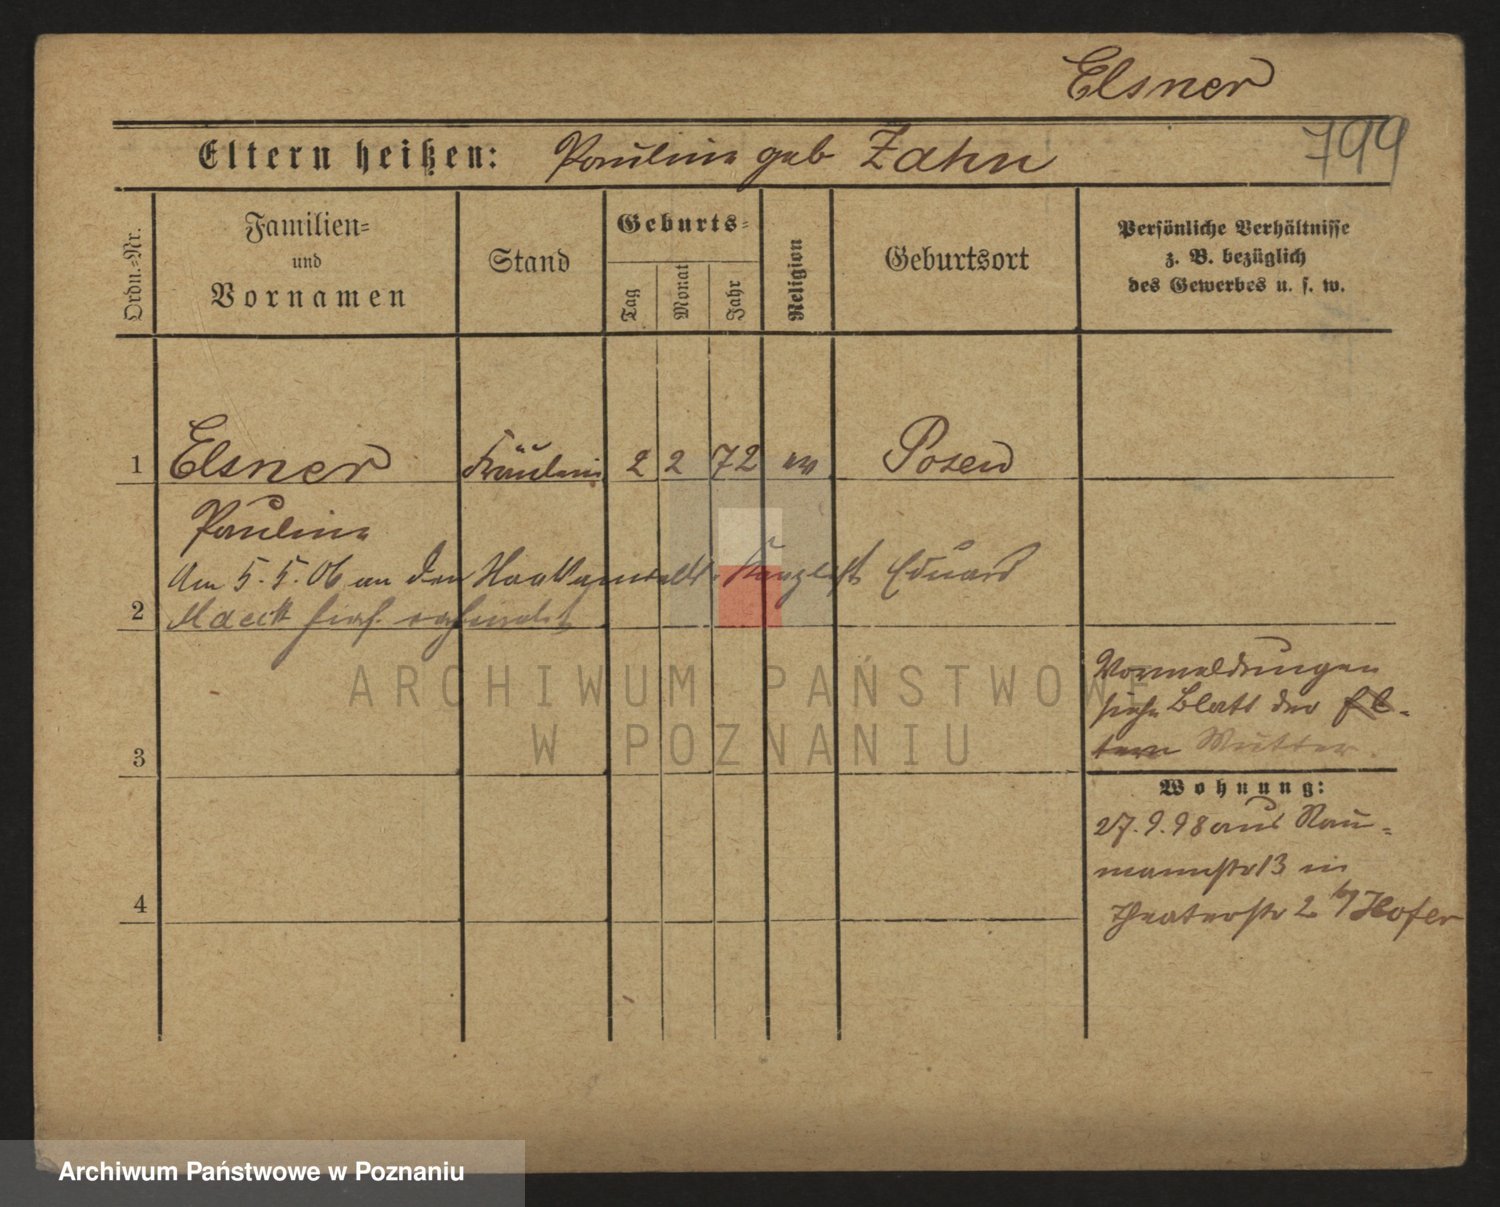 Elsner
799
Eltern heißen: Pauline geb Zahn
Ordn.-Nr.
Familien-
und
Vornamen
Stand
Geburts-
Tag
Monat
Jahr
Religion
Geburtsort
Persönliche Verhältnisse
z. B. bezüglich
des Gewerbes u. s. w.
1 Elsner Fräulein 2 2 72 ev Posen
Pauline
Am 5.5.06 an den Kanzlist Eduard
2 Maeck hier
Vormeldungen
siehe Blatt der El-
tern Mutter.
3
Wohnung:
27.9.98 aus Nau-
mannstr 13 in
Theaterstr 2 b/ Hofer
4
ARCHIWUM PAŃSTWOWE
W POZNANIU
Archiwum Państwowe w Poznaniu